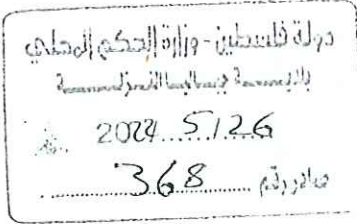 دولة فلسطين - وزارة الحكم المحلي
2024 5/26
صادر رقم 368